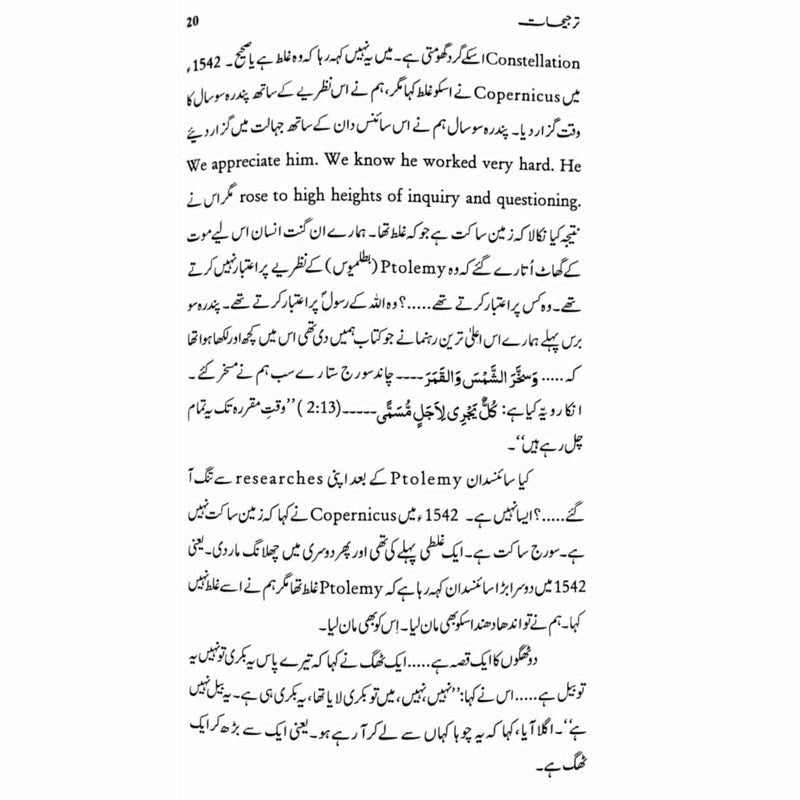 ترجیحات 20
Constellation اسکے گرد گھومتی ہے۔ میں یہ نہیں کہہ رہا کہ وہ غلط ہے یا صحیح۔ 1542ء
میں Copernicus نے اسکو غلط کہا مگر، ہم نے اس نظریے کے ساتھ پندرہ سو سال کا
وقت گزار دیا۔ پندرہ سو سال ہم نے اس سائنس دان کے ساتھ جہالت میں گزار دیئے
We appreciate him. We know he worked very hard. He
rose to high heights of inquiry and questioning. مگر اس نے
نتیجہ کیا نکالا کہ زمین ساکت ہے جو کہ غلط تھا۔ ہمارے ان گنت انسان اس لیے موت
کے گھاٹ اُتارے گئے کہ وہ Ptolemy (بطلمیوس) کے نظریے پر اعتبار نہیں کرتے
تھے۔ وہ کس پر اعتبار کرتے تھے.....؟ وہ اللہ کے رسولؐ پر اعتبار کرتے تھے۔ پندرہ سو
برس پہلے ہمارے اس اعلیٰ ترین رہنما نے جو کتاب ہمیں دی تھی اس میں کچھ اور لکھا ہوا تھا
کہ ..... وَسَخَّرَ الشَّمْسَ وَالْقَمَرَ ---- چاند سورج ستارے سب ہم نے مسخر کئے۔
انکا رویہ کیا ہے: كُلٌّ يَّجْرِي لِاَجَلٍ مُّسَمًّى -----(2:13) ’’وقتِ مقررہ تک یہ تمام
چل رہے ہیں‘‘۔
کیا سائنسدان Ptolemy کے بعد اپنی researches سے تنگ آ
گئے.....؟ ایسا نہیں ہے۔ 1542ء میں Copernicus نے کہا کہ زمین ساکت نہیں
ہے۔ سورج ساکت ہے۔ ایک غلطی پہلے کی تھی اور پھر دوسری میں چھلانگ مار دی۔ یعنی
1542 میں دوسرا بڑا سائنسدان کہہ رہا ہے کہ Ptolemy غلط تھا مگر ہم نے اسے غلط نہیں
کہا۔ ہم نے تو اندھا دھند اسکو بھی مان لیا۔ اِس کو بھی مان لیا۔
دو ٹھگوں کا ایک قصہ ہے..... ایک ٹھگ نے کہا کہ تیرے پاس یہ بکری تو نہیں یہ
تو بیل ہے ..... اس نے کہا: ’’نہیں، نہیں، میں تو بکری لایا تھا، یہ بکری ہی ہے۔ یہ بیل نہیں
ہے‘‘۔ اگلا آیا، کہا کہ یہ چوہا کہاں سے لے کر آ رہے ہو۔ یعنی ایک سے بڑھ کر ایک
ٹھگ ہے۔